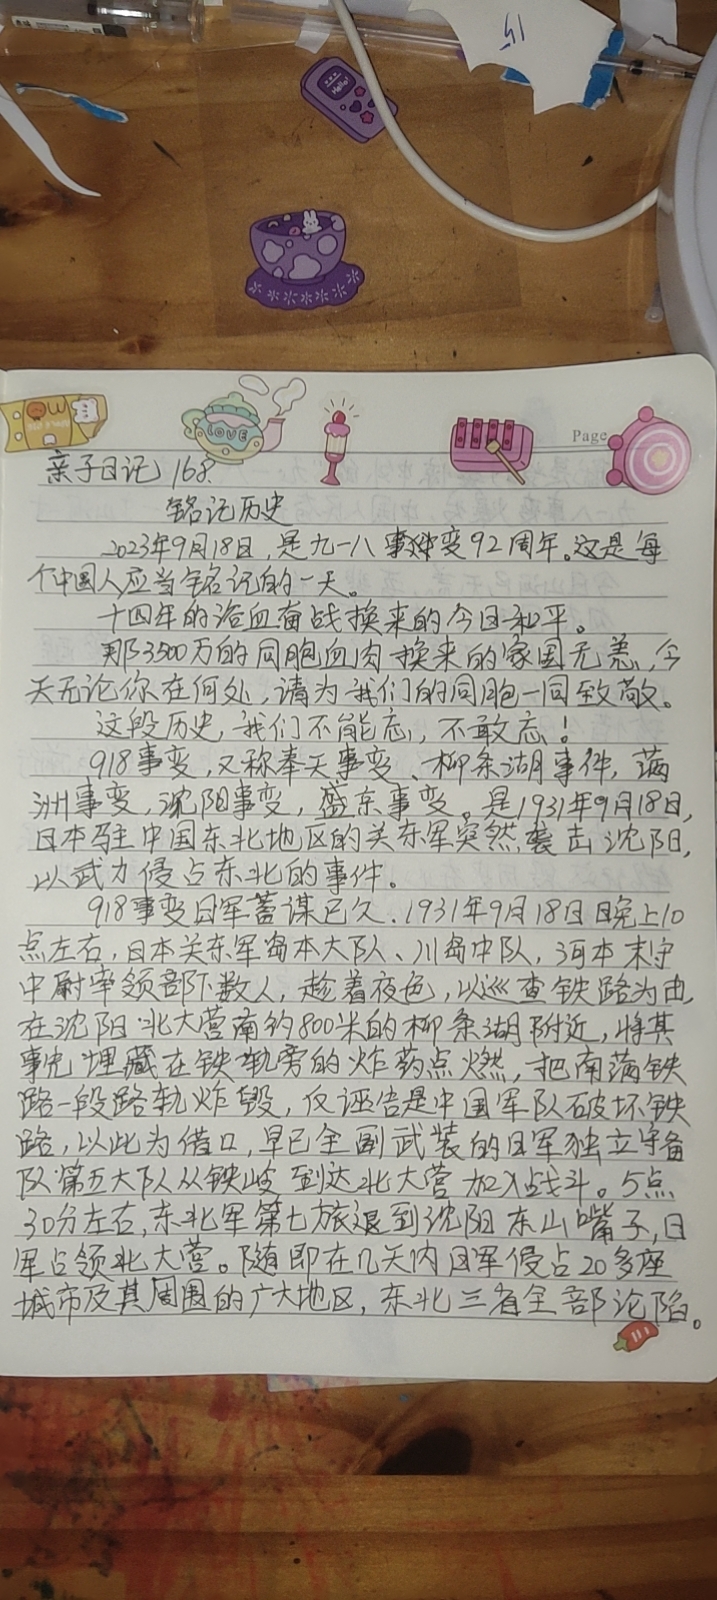 Hello!
15
LOVE
Page
亲子日记 168.
铭记历史
2023年9月18日，是九一八事变92周年。这是每
个中国人应当铭记的一天。
十四年的浴血奋战换来的今日和平。
那3500万的同胞血肉换来的家国无恙，今
天无论你在何处，请为我们的同胞一同致敬。
这段历史，我们不能忘，不敢忘！
918事变，又称奉天事变、柳条湖事件，满
洲事变，沈阳事变，盛京事变。是1931年9月18日，
日本驻中国东北地区的关东军突然袭击沈阳，
以武力侵占东北的事件。
918事变日军蓄谋已久．1931年9月18日晚上10
点左右，日本关东军岛本大队、川岛中队，河本末守
中尉率领部下数人，趁着夜色，以巡查铁路为由
在沈阳北大营南约800米的柳条湖附近，将其
事先埋藏在铁轨旁的炸药点燃，把南满铁
路一段路轨炸毁，反诬告是中国军队破坏铁
路，以此为借口，早已全副武装的日军独立守备
队第五大队从铁岭到达北大营加入战斗。5点
30分左右，东北军第七旅退到沈阳东山嘴子，日
军占领北大营。随即在几天内日军侵占20多座
城市及其周围的广大地区，东北三省全部沦陷。